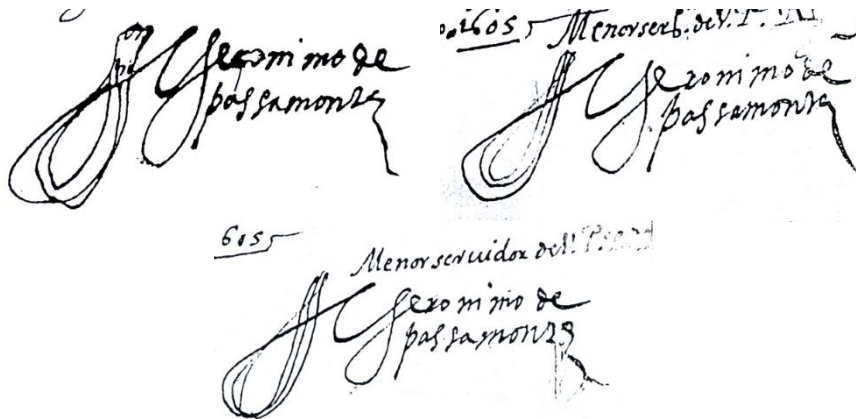 Geronimo de
passamonte
1605 Menor serb. de V. P.
Geronimo de
passamonte
605
Menor seruidor de V. P.
Geronimo de
passamonte